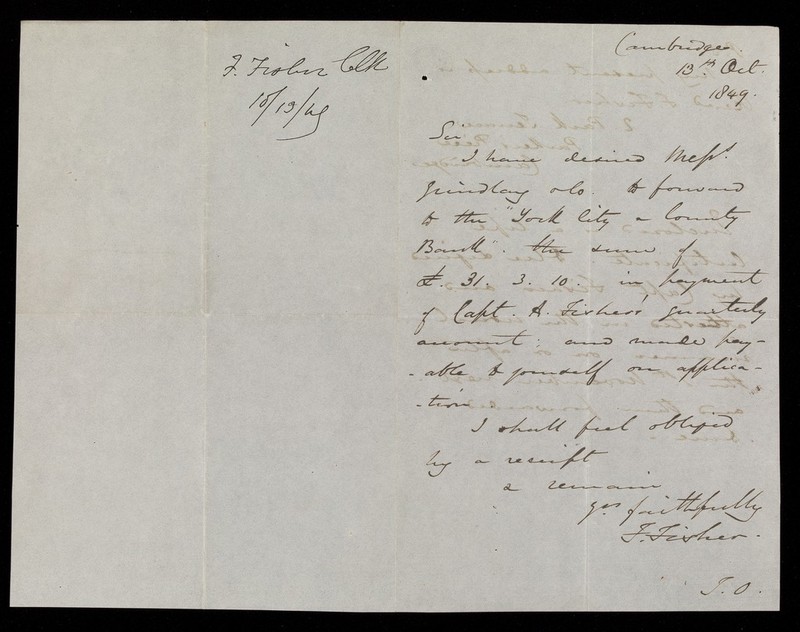 F. Fisher Clk
10/13/49
Cambridge.
13th Oct.
1849.
Sir
I have desired Messs.
Grindlay & Co. to forward
to the "York City & County
Bank". the sum of
£. 31. 3. 10. in payment
of Capt. A. Fishers' quarterly
account; and made pay-
-able to yourself on applica-
-tion
I shall feel obliged
by a receipt
& remain
yrs faithfully
F. Fisher.
T. O.